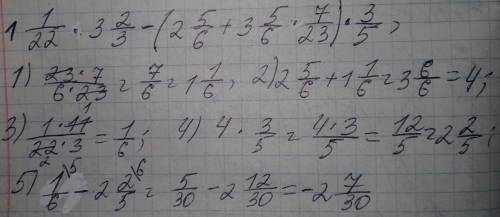 1 1/22 · 3 2/3 - (2 5/6 + 3 5/6 · 7/23) · 3/5 ,
1) 23·7/6·23 = 7/6 = 1 1/6 , 2) 2 5/6 + 1 1/6 = 3 6/6 = 4;
3) 1·11/22·3 = 1/6 ; 4) 4 · 3/5 = 4·3/5 = 12/5 = 2 2/5 ;
5) 1/6 - 2 2/5 = 5/30 - 2 12/30 = -2 7/30